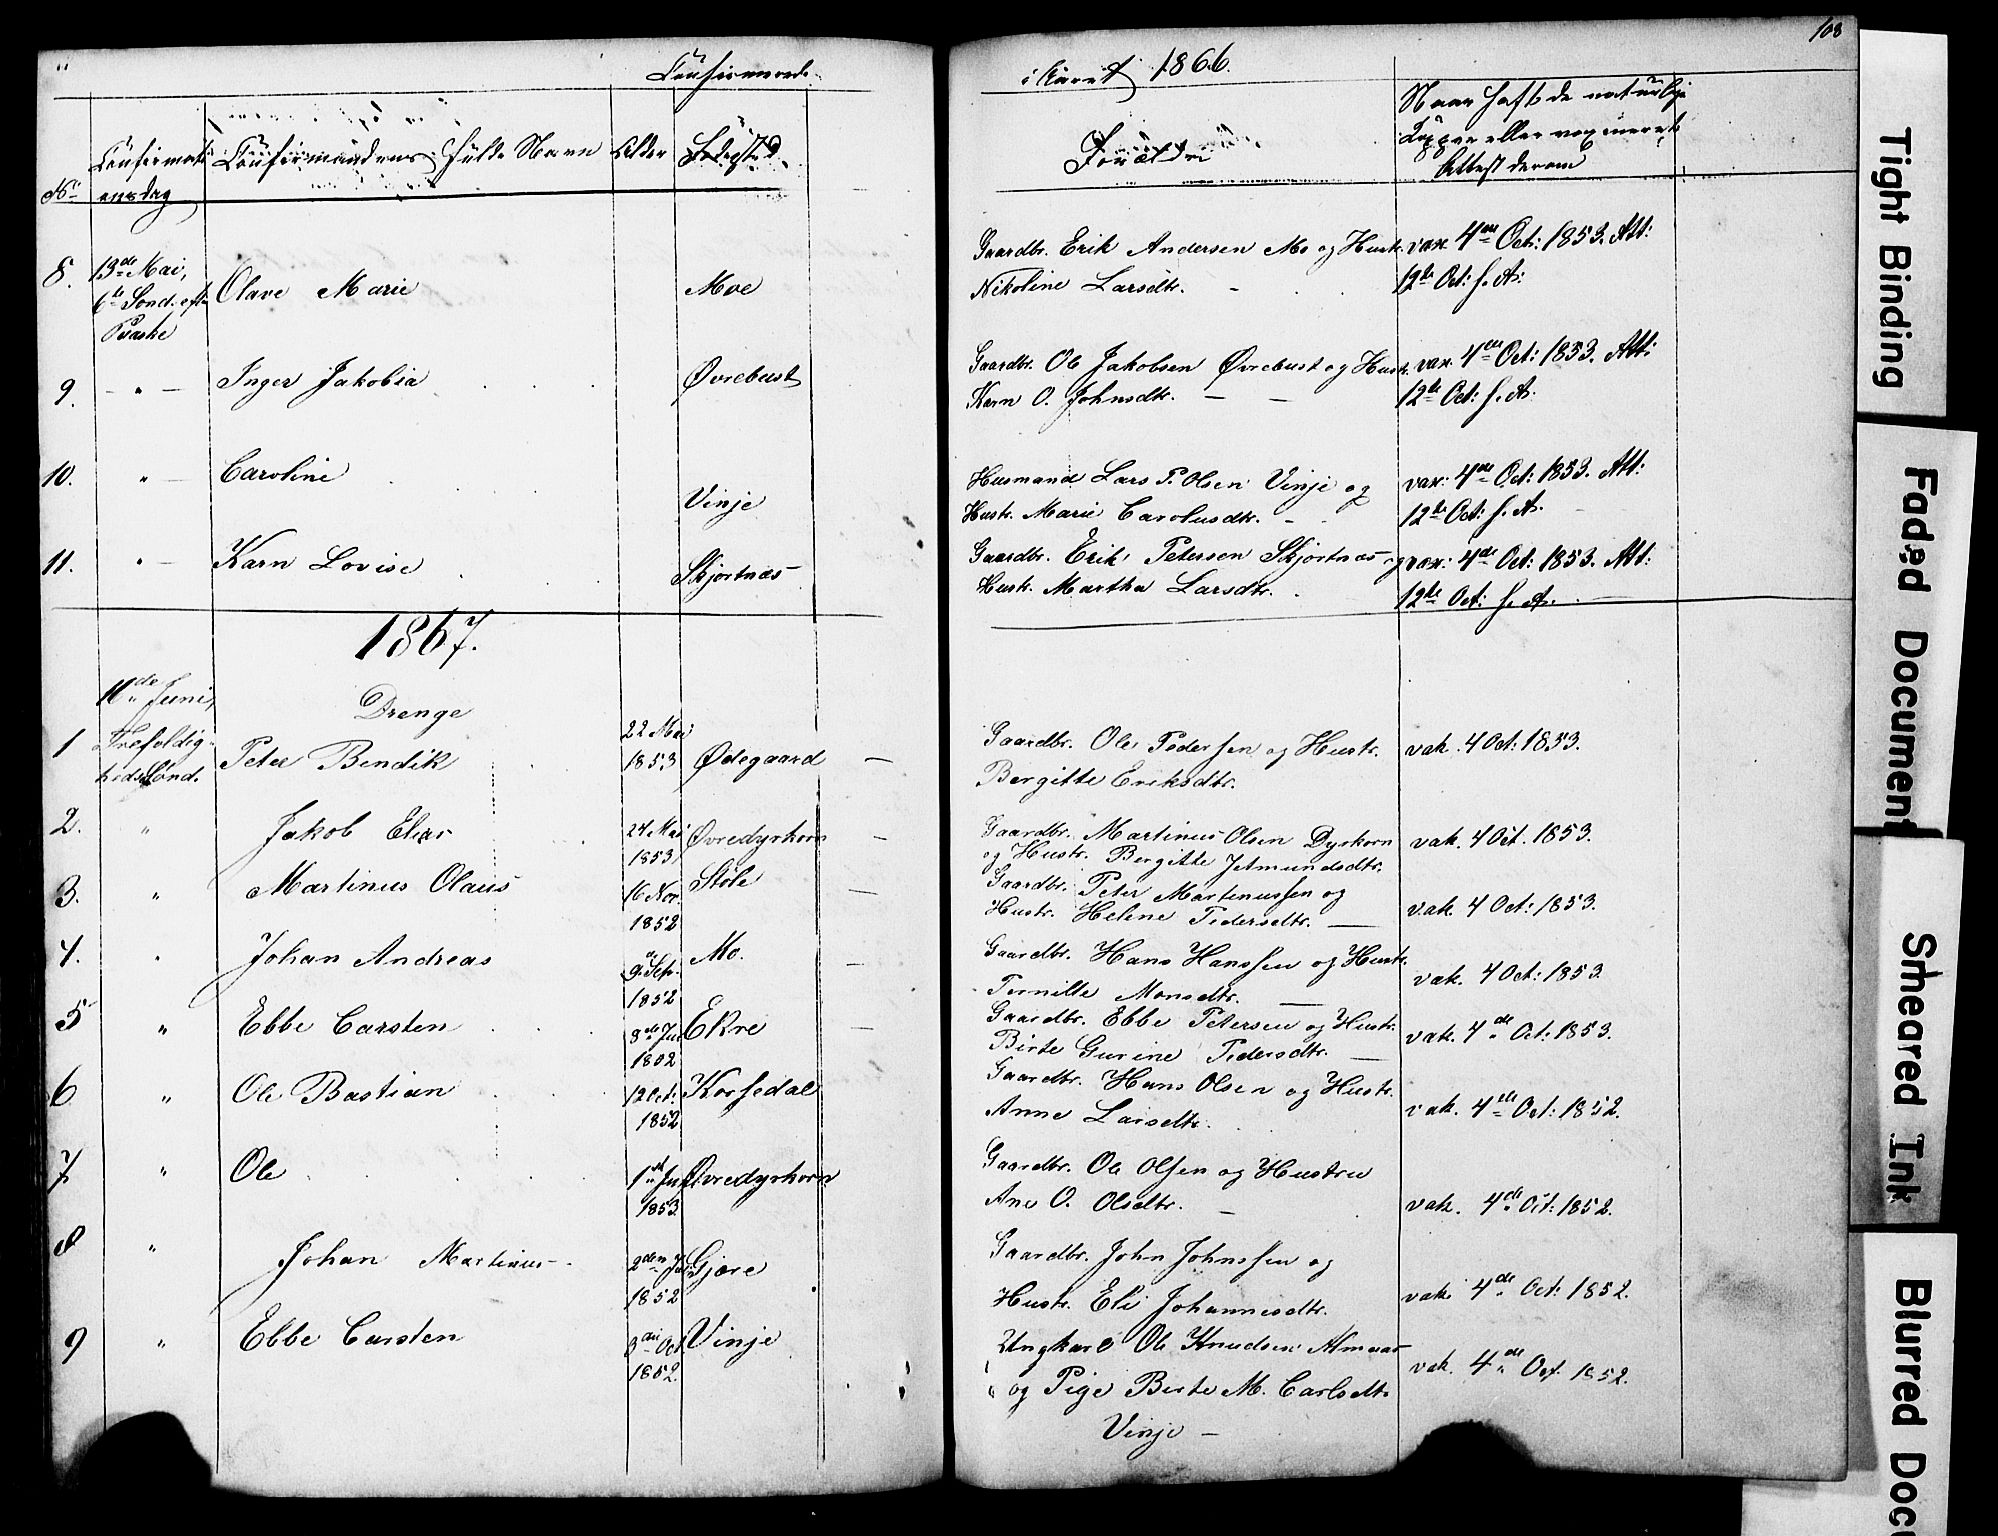 Confirmerede
i Aaret 1866.
108
No
Confirmati-
onsdag
Confirmandens fulde Navn
Alder
Fødested
Forældre
Naar havt de naturlige
Kopper eller vaxineret
Attest derom
8. 13de Mai, Olave Marie Moe Gaardbr. Erik Andersen Mo og Hustr. vax. 4de Oct: 1853. Att:
6te Sønd. eft. Nikoline Larsdtr. 12te Oct: s. A.
Paaske
9. - " - Inger Jakobia Øvrebust Gaardbr. Ole Jakobsen Øvrebust og Hustr. vax. 4de Oct: 1853. Att:
Karn O. Johnsdtr. 12te Oct: s. A.
10. " Caroline Vinje Husmand Lars P. Olsen Vinje og vax: 4de Oct: 1853. Att:
Hustr. Marie Carolusdtr. 12te Oct: s. A.
11. " Karn Lovise Skjortnæs Gaardbr. Erik Petersen Skjortnæs og vax: 4de Oct: 1853. Att:
Hustr. Martha Larsdtr. 12te Oct: s. A.
1867.
Drenge
Juni,
1 Trefoldig- Peter Bendik 22 Mai Ødegaard Gaardbr. Ole Pedersen og Hustr. vak. 4 Oct: 1853.
heds Sønd. 1853 Bergitte Eriksdtr.
2. " Jakob Elias 24 Mai Øvredyrkorn Gaardbr. Martinus Olsen Dyrkorn vak. 4 Oct. 1853.
1853 og Hustr. Bergitte Jetmundsdtr.
3. " Martinus Olaus 16 Nov. Støle Gaardbr. Peter Martinussen og vak. 4 Oct: 1853.
1852 Hustr. Helene Pedersdtr.
4. " Johan Andreas 9de Sept. Mo. Gaardbr. Hans Hanssen og Hustr. vak. 4 Oct: 1853.
1852 Pernille Monsdtr.
5 " Ebbe Carsten 8de Ekre Gaardbr. Ebbe Petersen og Hustr. vak. 4de Oct: 1853.
1802 Birte Gurine Pedersdtr.
6 " Ole Bastian 12 Oct. Korsedal Gaardbr. Hans Olsen og Hustr. vak. 4de Oct: 1852.
1852 Anne Larsdtr.
7 " Ole 1ste Øvredyrkorn Gaardbr. Ole Olsen og Hustru
1853. Ane O. Olsdtr. vak. 4de Oct: 1852.
8 " Johan Martinus 2den Gjære Gaardbr. John Johnssen og
1852 Hustr. Eli Johannesdtr. vak. 4de Oct: 1852.
9 " Ebbe Carsten 3die Oct Vinje Ungkarl Ole Knudsen Almaas
1852. og Pige Birte M. Carlsdtr. vak. 4de Oct 1852.
Vinje
Tight Binding
Faded Document
Smeared Ink
Blurred Doc